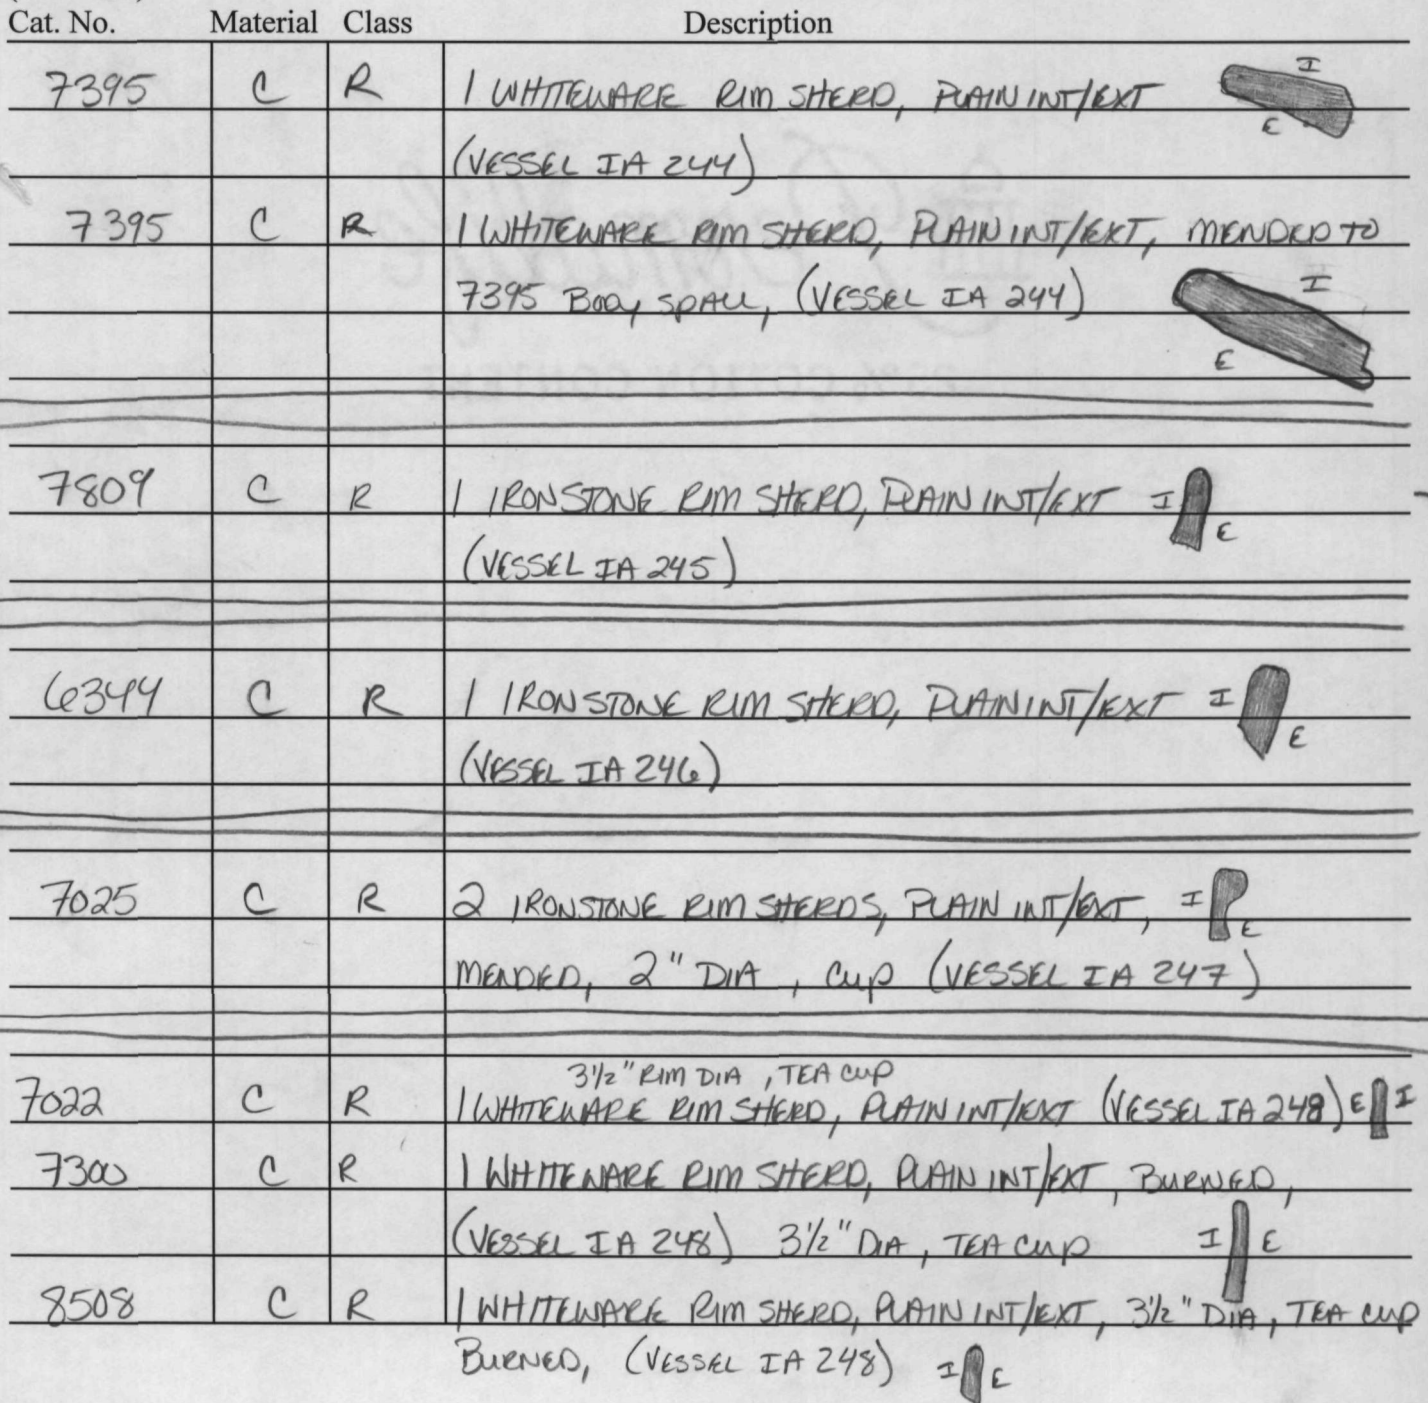 Cat. No. Material Class Description
7395 C R 1 WHITEWARE RIM SHERD, PLAIN INT/EXT I
E
(VESSEL IA 244)
7395 C R 1 WHITEWARE RIM SHERD, PLAIN INT/EXT, MENDED TO
7395 BODY SPALL, (VESSEL IA 244) I
E
7809 C R 1 IRONSTONE RIM SHERD, PLAIN INT/EXT I E
(VESSEL IA 245)
6344 C R 1 IRONSTONE RIM SHERD, PLAIN INT/EXT I E
(VESSEL IA 246)
7025 C R 2 IRONSTONE RIM SHERDS, PLAIN INT/EXT, I E
MENDED, 2" DIA, CUP (VESSEL IA 247)
3 1/2" RIM DIA, TEA CUP
7022 C R 1 WHITEWARE RIM SHERD, PLAIN INT/EXT (VESSEL IA 248) E I
7300 C R 1 WHITEWARE RIM SHERD, PLAIN INT/EXT, BURNED,
(VESSEL IA 248) 3 1/2" DIA, TEA CUP I E
8508 C R 1 WHITEWARE RIM SHERD, PLAIN INT/EXT, 3 1/2" DIA, TEA CUP
BURNED, (VESSEL IA 248) I E